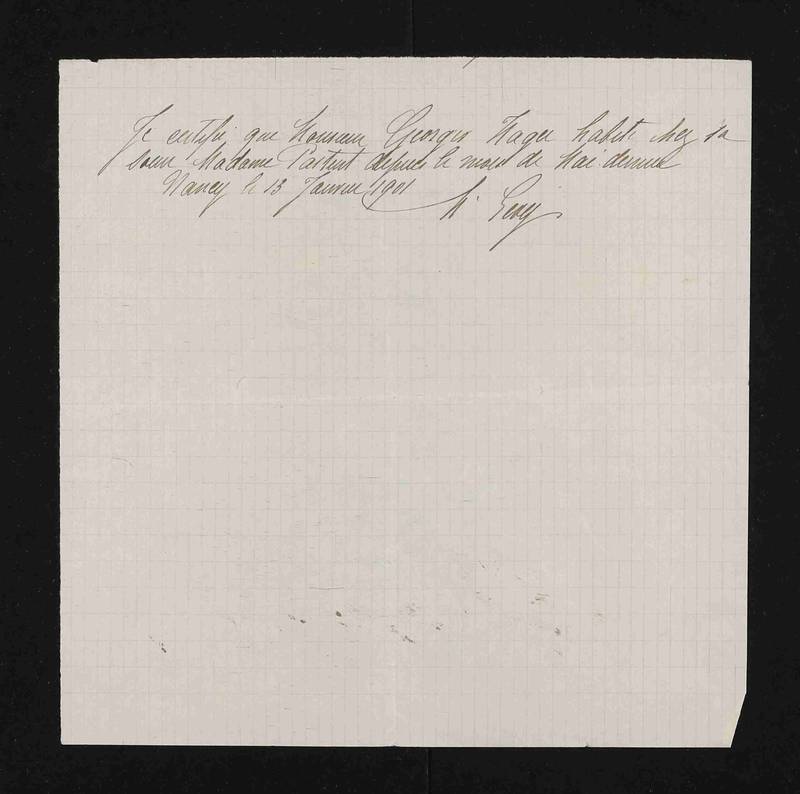 Je certifie que Monsieur Georges Hagee habite chez sa
sœur Madame depuis le mois de Mai dernier
Nancy le 13 Janvier 1901